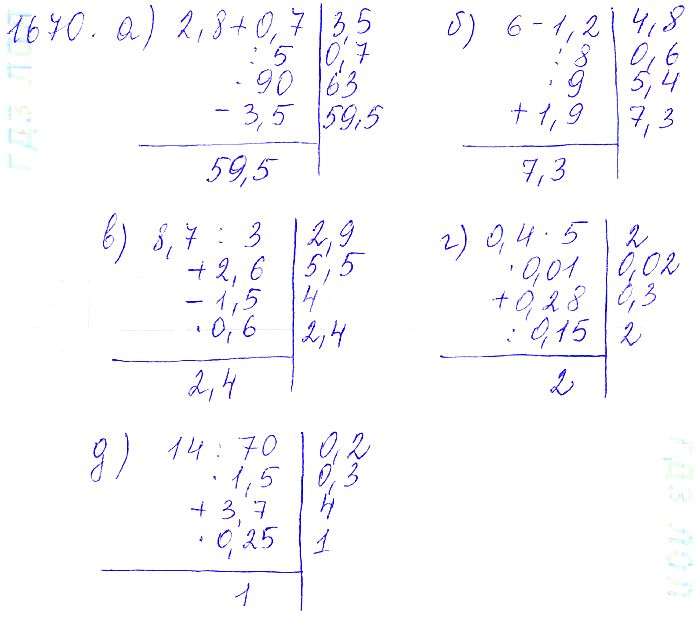 1670. а) 2,8+0,7 | 3,5
: 5 | 0,7
· 90 | 63
- 3,5 | 59,5
59,5
б) 6-1,2 | 4,8
: 8 | 0,6
· 9 | 5,4
+ 1,9 | 7,3
7,3
в) 8,7 : 3 | 2,9
+ 2,6 | 5,5
- 1,5 | 4
· 0,6 | 2,4
2,4
г) 0,4 · 5 | 2
· 0,01 | 0,02
+ 0,28 | 0,3
: 0,15 | 2
2
д) 14 : 70 | 0,2
· 1,5 | 0,3
+ 3,7 | 4
· 0,25 | 1
1
ГДЗ ЛОЛ
ГДЗ ЛОЛ